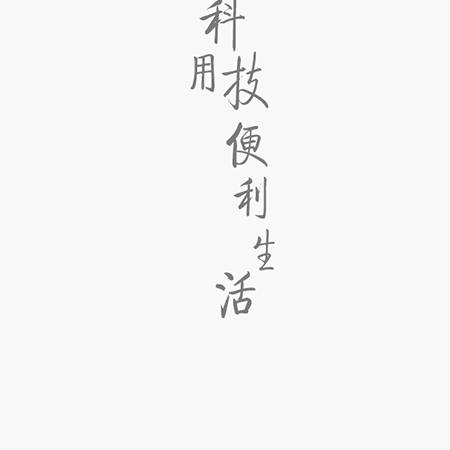 用
科技便利生活